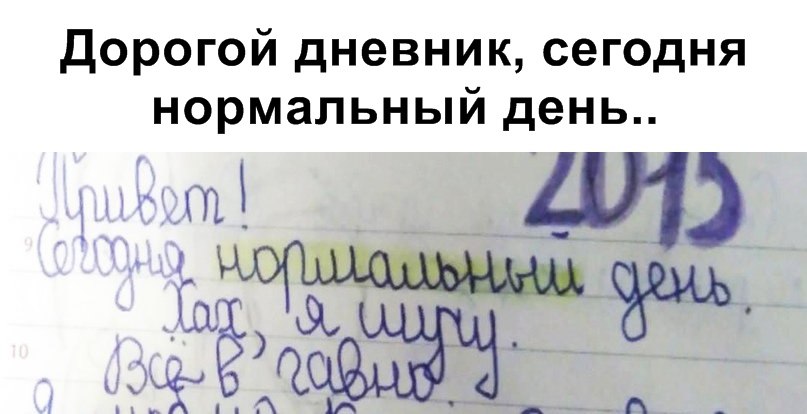 Дорогой дневник, сегодня
нормальный день..
2015
Привет!
9
Сегодня нормальный день.
Хах, я шучу.
10
Всё в гавно